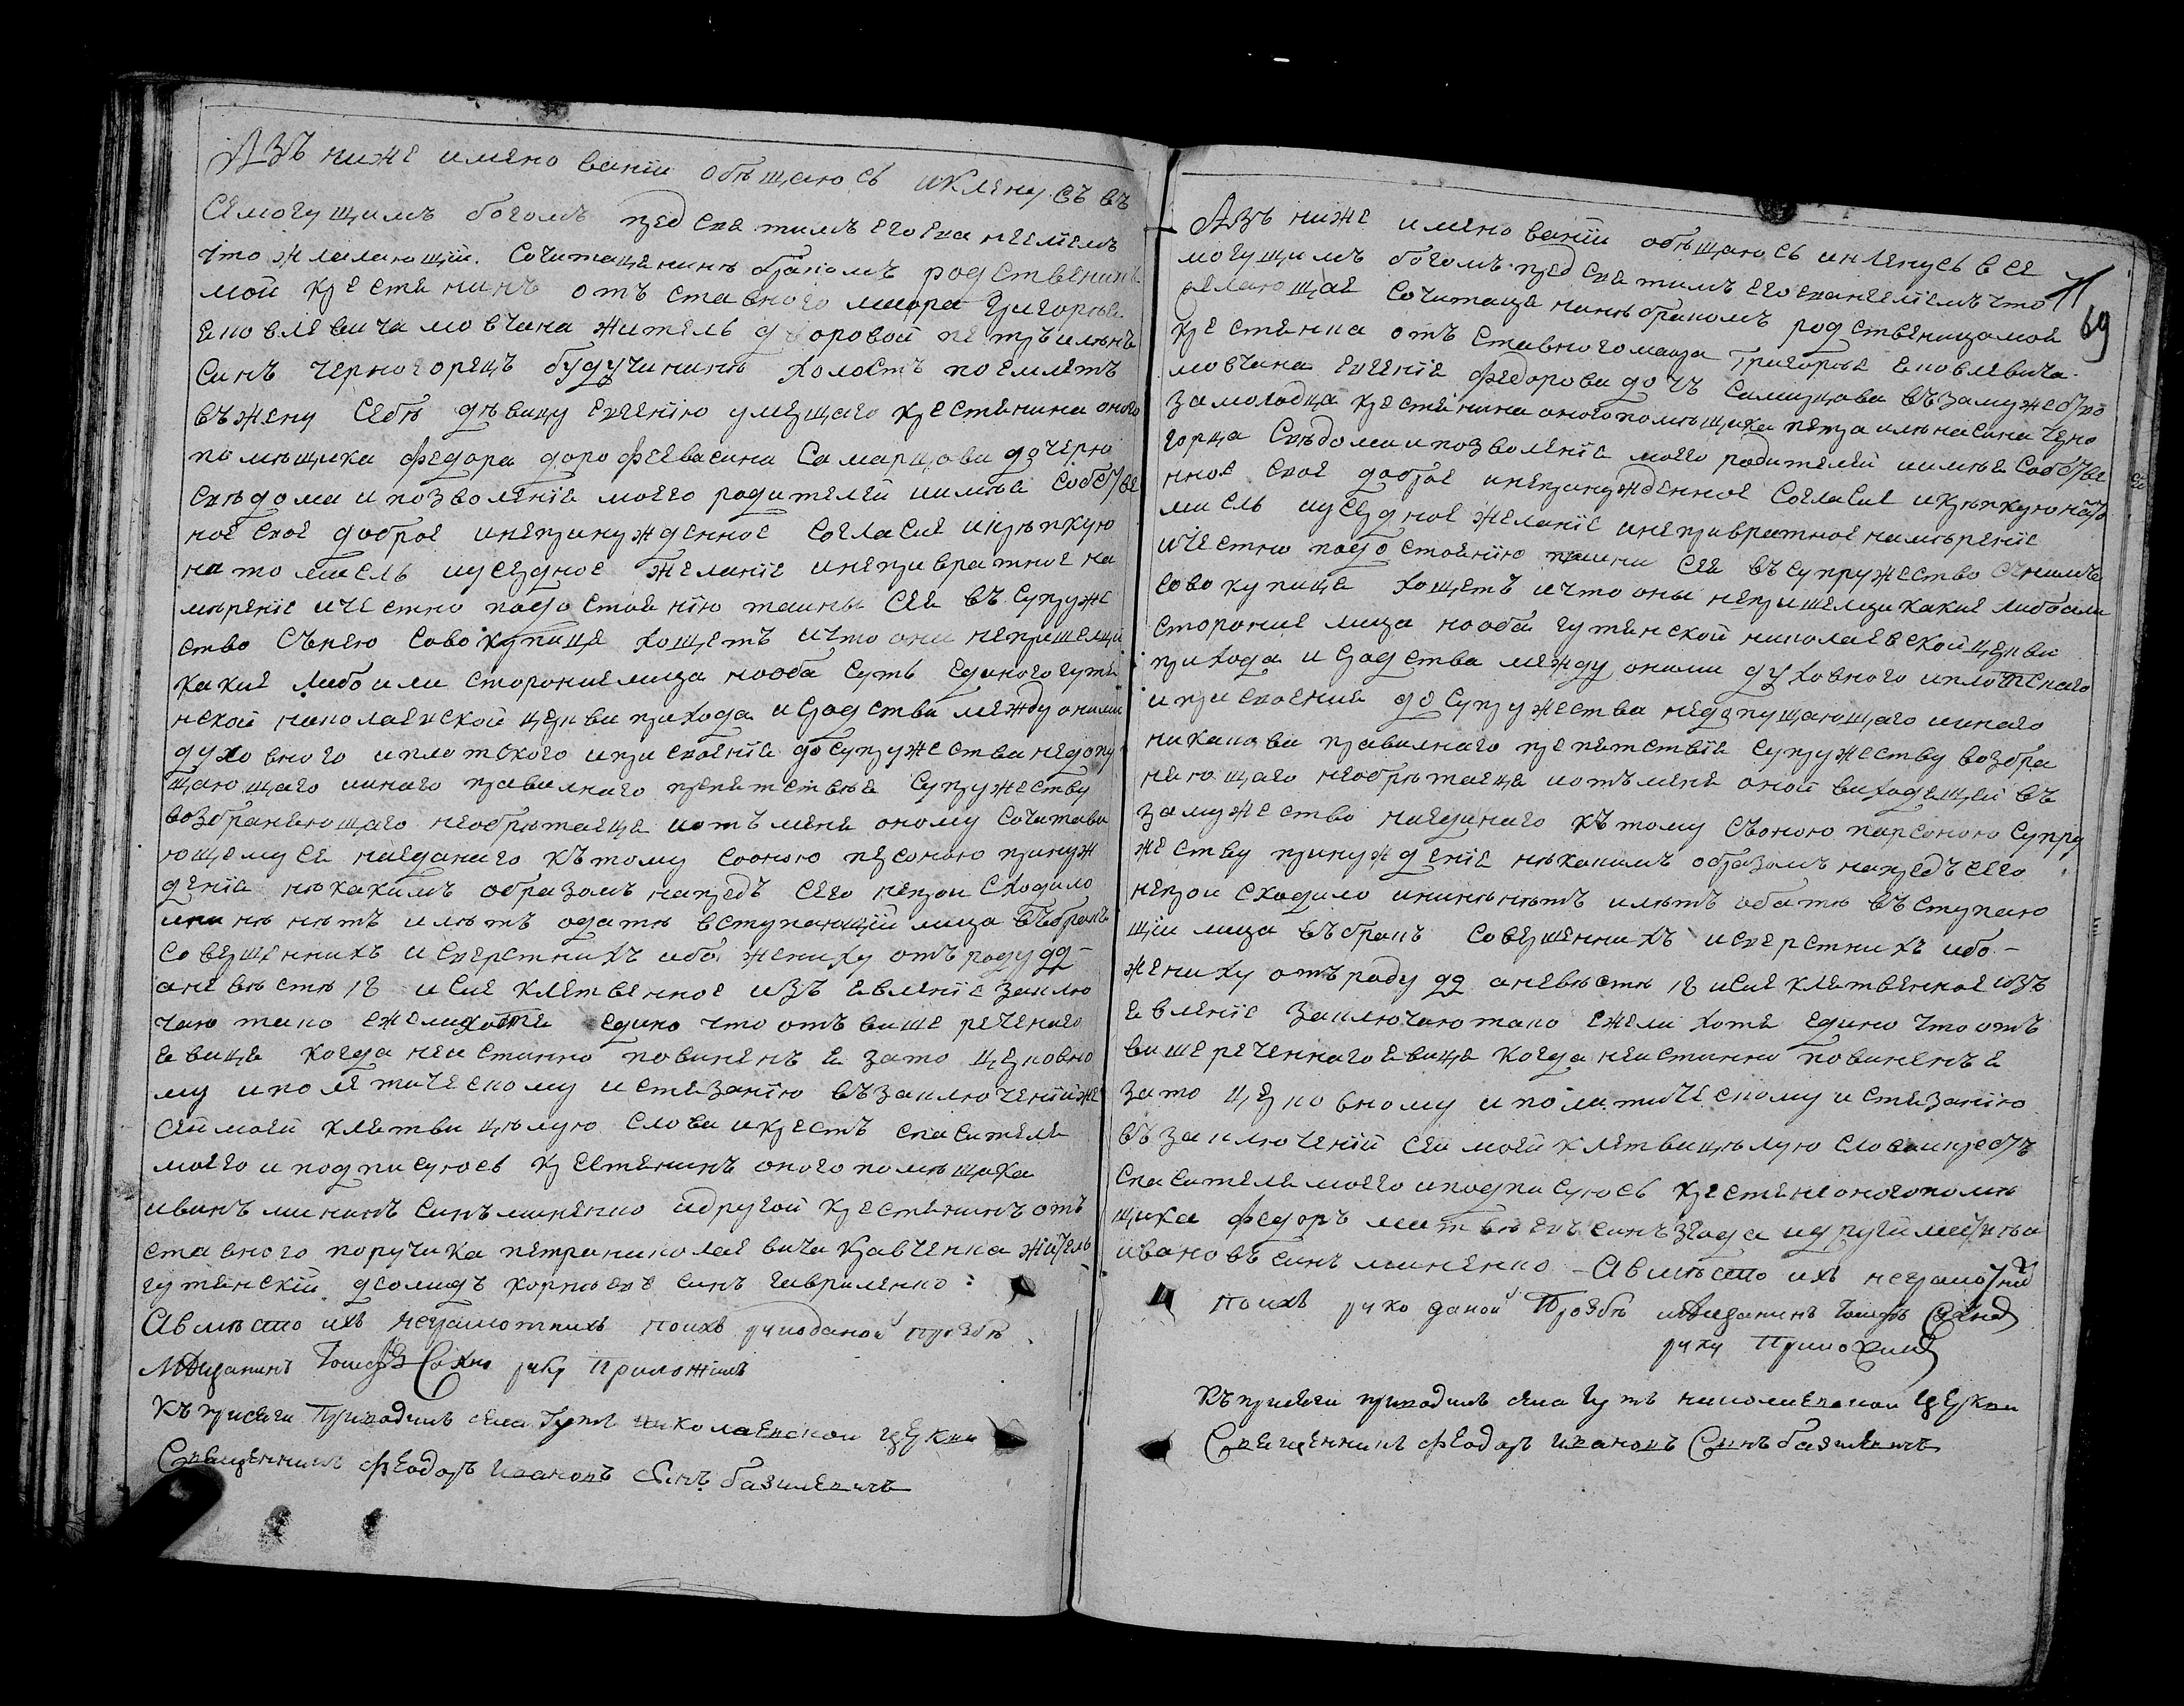 Азъ ниже имяно ваніи обѣщаюсь иклянусъ въ
сямогущимъ богомъ пред свя тимъ его евангелїемъ
что жлалающїй. Сочитаця нинѣ бракомъ родственикъ
мой крестянинъ отъ ставного маиора Григорыя
яковлевича мовчана житель дворовой петръ илїинъ
синъ черногорецъ будучи нинѣ холостъ поемлетъ
въ жену Себѣ дѣвицу евгенїю умершаго крестянина оного
помѣщика федора дорофеева сина Самарцова дочерю
свѣдома ипозволенїя моего родителей иимѣя собстве
ное свое доброе инепринужденное согласие икрѣпкую
на то мисль иусердное желанїе инепривратное на
мѣренїе ичестно подостоянїю таины сея въ супруже
ство Сънею совокупиця хощетъ ичто они непришелци
какие либо или стороние лица нооба суть единого гутя
нской николаевской церкви прихода исродства между оними
духовного иплотского иприсвоенїя до супружества недопу
щающаго инаго правилнаго препятствия Супружеству
возбраняющаго необрѣтаеця иотъ мене оному сочитава
ющемуся наединаго кътому сооною персоною принуж
денїя нѣкакимъ образомъ напредъ сего непроисходило
ининѣ нѣтъ илѣтъ одатѣ вступающїй лица въбракъ
совершеннихъ исверстнихъ ибо жениху отъ роду 22
аневѣстѣ 18 исие клятвенное изъ явленїе заклю
чаю тако ежелихотя едино что отъ више реченого
явиця когда неистинно повиненъ я зато церковно
му иполятическому истязанїю възаключенїи же
сей моей клятви цѣлую слова икрестъ спасителя
моего иподписуюсь крестянинъ оного помѣщика
иванъ мининъ синъ миненко идругой крестянинъ отъ
ставного поручика петраниколаевича кравченка житель
гутянскїй диомидъ корнѣевъ синъ гавриленко:
Авмѣсто ихъ неграмотнихъ поихъ рукоданой прозбѣ
Мѣщанинъ Сахно руку приложилъ
Къ присяги приводилъ села Гутъ николаевской церкви
Священникъ феодоръ Ивановъ Синъ базилевичъ
Азъ ниже имяно ваній обѣщаюсь иклянусь всe
могущимъ богомъ пред свя тимъ его евангелїемъ что
желающая Сочитаця нинѣ бракомъ родственица моя
69
крестянка отъ ставного маиора Григорыя яковлевича
мовчана евгенїя федорова дочъ Самарцова възамужество
замолодца крестянина оного помѣщика петра илѣна сина черно
горца свѣдома ипозволенїя моего родителей иимѣя собстве
нное свое доброе инепринужденное согласие икрѣпкую нато
мисль иусердное желанїе инепривратное намѣренїе
ичестно подостоянїю таини сея въсупружество снимъ
совокупиця хощетъ ичто оны непришелци какие либо или
стороние лица нооба гутянской николаевской церкви
прихода исродства между оними духовного иплотскаго
иприсвоения до супружества недопущающаго инаго
никакова правилнаго препятствїя супружеству возбра
няющаго необрѣтаеця иотъмене оной виходящей въ
замужество наединаго кътому съоною парсоною супру
жеству принужденїя нѣкакимъ образомъ напредъ сего
непроисходило ининѣ нѣтъ илѣтъ обатѣ въступаю
щїи лица въбракъ совершеннихъ исверстнихъ ибо-
жениху отъ роду 22 аневѣстѣ 18 исие клятвенное изъ
явленїе заключаю тако ежели хотя едино что отъ
више реченнаго явиця когда неистинно повиненъ я
зато церковному иполитическому истязанїю
възаключенїй сей моей клятви цѣлую слова икрестъ
спасителя моего иподписуюсь крестяне оного помѣ
щика федоръ матвѣевъ синъ згода идругїй
ивановъ синъ миненко - Авмѣсто ихъ неграмотній
поихъ руко даной Прозбѣ мѣщанинъ Сахно
руку Приложилъ
Къприсяги приводилъ села гутъ николаевской церкви
Священникъ феодоръ Ивановъ Синъ базилевичъ